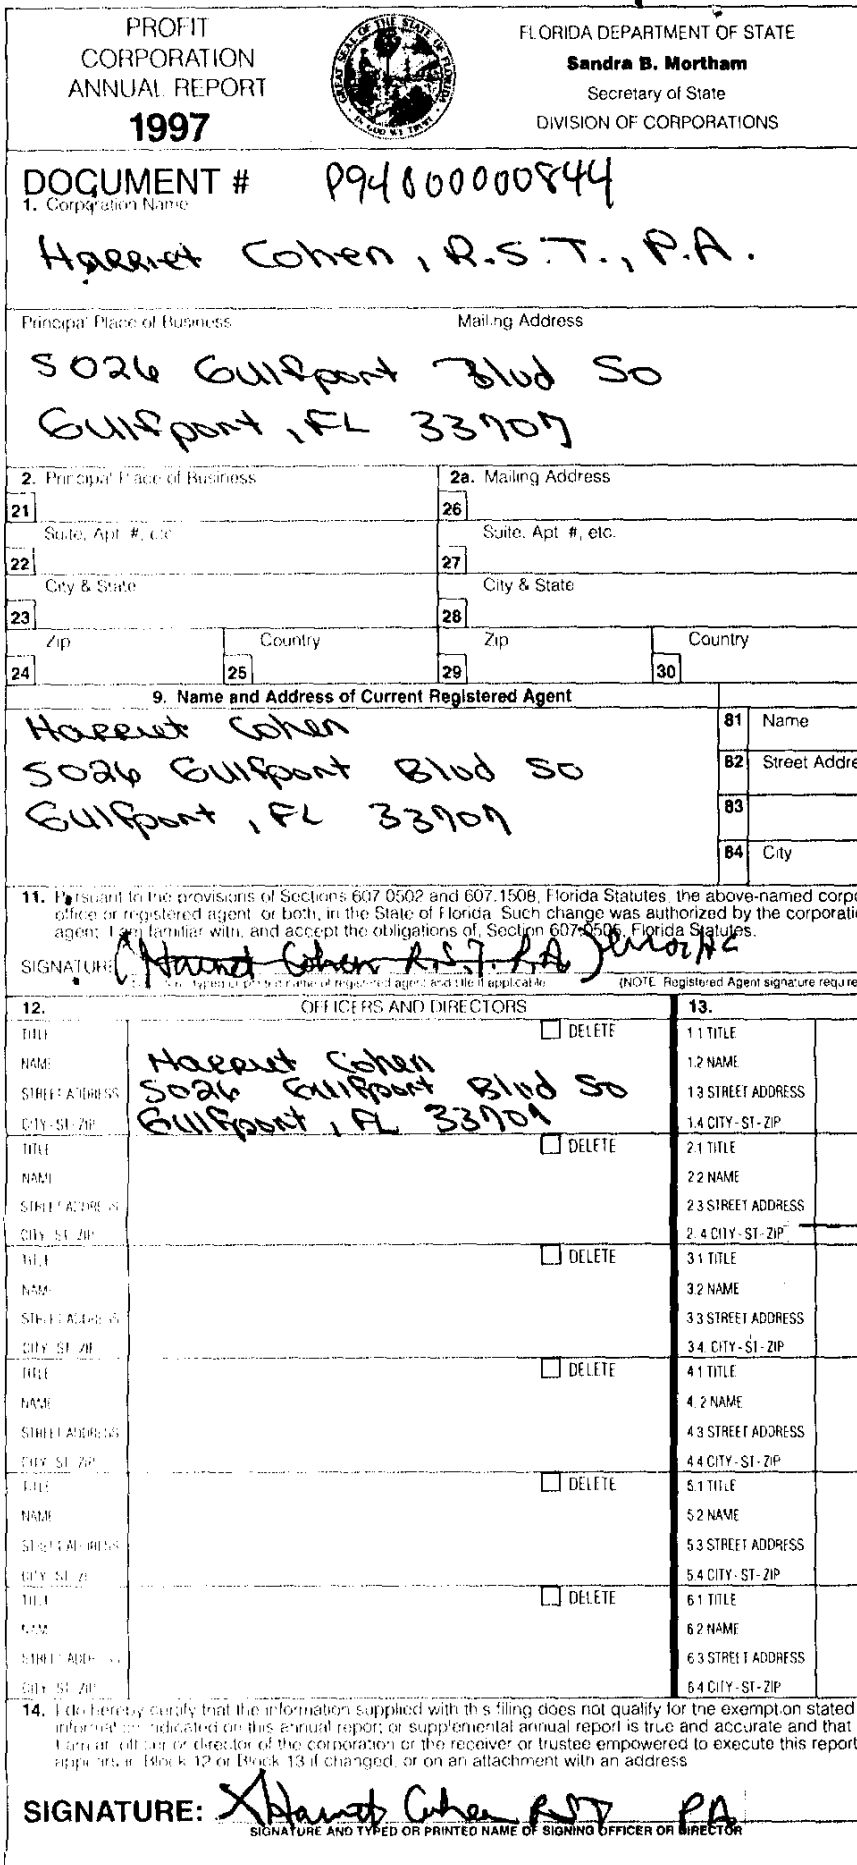 PROFIT
CORPORATION
ANNUAL REPORT
1997
GREAT SEAL OF THE STATE OF FLORIDA
IN GOD WE TRUST
FLORIDA DEPARTMENT OF STATE
Sandra B. Mortham
Secretary of State
DIVISION OF CORPORATIONS
DOCUMENT # P94000000844
1. Corporation Name
Harriet Cohen, R.S.T., P.A.
Principal Place of Business Mailing Address
5026 Gulfport Blvd So
Gulfport, FL 33707
2. Principal Place of Business 2a. Mailing Address
21 26
Suite, Apt #, etc Suite, Apt #, etc.
22 27
City & State City & State
23 28
Zip Country Zip Country
24 25 29 30
9. Name and Address of Current Registered Agent
Harriet Cohen
5026 Gulfport Blvd So
Gulfport, FL 33707
81 Name
82 Street Addre
83
84 City
11. Pursuant to the provisions of Sections 607.0502 and 607.1508, Florida Statutes, the above-named corpo
office or registered agent, or both, in the State of Florida. Such change was authorized by the corporati
agent. I am familiar with, and accept the obligations of, Section 607.0505, Florida Statutes.
SIGNATURE (Harriet Cohen R.S.T. P.A.)
typed or printed name of registered agent and title if applicable (NOTE: Registered Agent signature require
12. OFFICERS AND DIRECTORS 13.
TITLE DELETE 1.1 TITLE
NAME Harriet Cohen 1.2 NAME
STREET ADDRESS 5026 Gulfport Blvd So 1.3 STREET ADDRESS
CITY-ST-ZIP Gulfport, FL 33707 1.4 CITY-ST-ZIP
TITLE DELETE 2.1 TITLE
NAME 2.2 NAME
STREET ADDRESS 2.3 STREET ADDRESS
CITY-ST-ZIP 2.4 CITY-ST-ZIP
TITLE DELETE 3.1 TITLE
NAME 3.2 NAME
STREET ADDRESS 3.3 STREET ADDRESS
CITY-ST-ZIP 3.4. CITY-ST-ZIP
TITLE DELETE 4.1 TITLE
NAME 4.2 NAME
STREET ADDRESS 4.3 STREET ADDRESS
CITY-ST-ZIP 4.4 CITY-ST-ZIP
TITLE DELETE 5.1 TITLE
NAME 5.2 NAME
STREET ADDRESS 5.3 STREET ADDRESS
CITY-ST-ZIP 5.4 CITY-ST-ZIP
TITLE DELETE 6.1 TITLE
NAME 6.2 NAME
STREET ADDRESS 6.3 STREET ADDRESS
CITY-ST-ZIP 6.4 CITY-ST-ZIP
14. I do hereby certify that the information supplied with this filing does not qualify for the exemption stated
information indicated on this annual report or supplemental annual report is true and accurate and that
I am an officer or director of the corporation or the receiver or trustee empowered to execute this report
appears in Block 12 or Block 13 if changed, or on an attachment with an address
SIGNATURE: X Harriet Cohen RST PA
SIGNATURE AND TYPED OR PRINTED NAME OF SIGNING OFFICER OR DIRECTOR